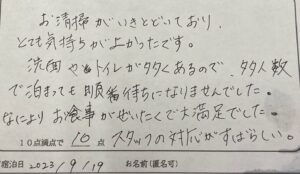 お清掃がいきとどいており、
とても気持ちが上がったです。
洗面やトイレが多くあるので、多人数
で泊まっても順番待ちになりませんでした。
なによりお食事がぜいたくで大満足でした。
10点満点で 10 点 スタッフの対応がすばらしい。
宿泊日 2023/9/19 お名前(匿名可)